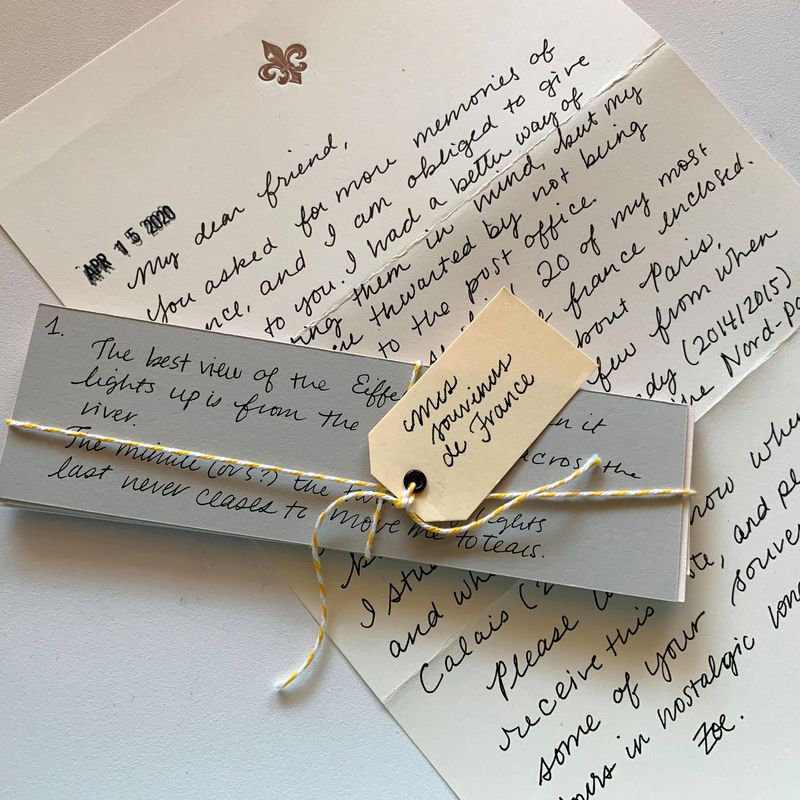 APR 15 2020
My dear friend,
You asked for more memories of
nce, and I am obliged to give
to you. I had a better way of
ing them in mind, but my
thwarted by not being
to the post office.
20 of my most
of france enclosed.
bout Paris,
few from when
dy (2014/2015)
he Nord-Pa
I stu
and wh
Calais (2
Please
now whe
receive this
te, and pl
some of your souve
ours in nostalgic
Zoe.
1.
The best view of the Eiffe
n it
lights up is from the
across the
river.
The minute (or 5?) the
lights
last never ceases to move me to tears.
Mes
souvenirs
de France